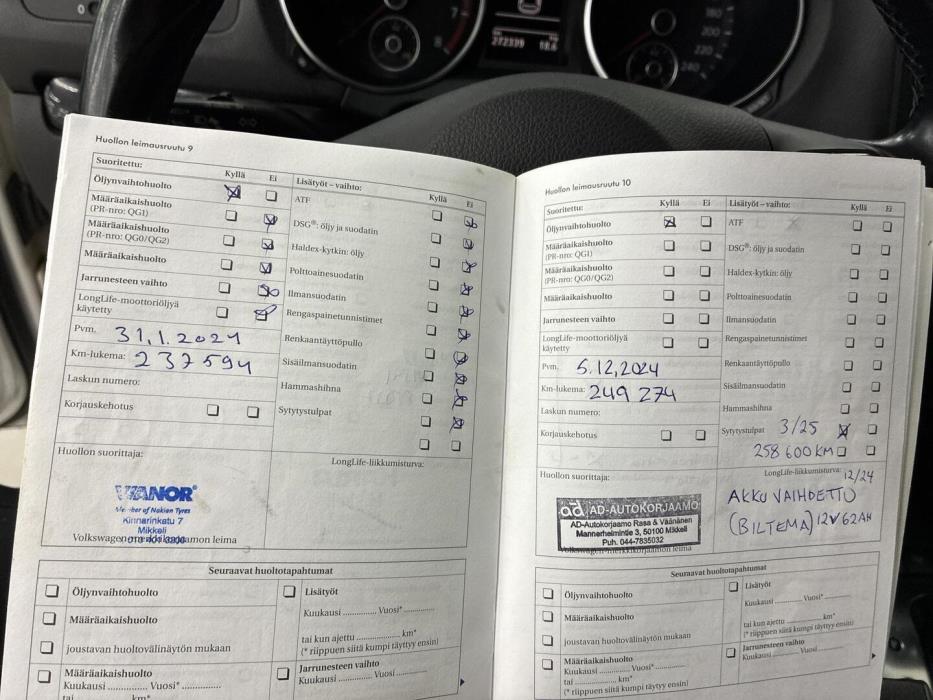 7
8
272339 18.6
180
200
220
240
0
Huollon leimausruutu 9
Suoritettu:
Kyllä Ei
Öljynvaihtohuolto
Määräaikaishuolto
(PR-nro: QG1)
Määräaikaishuolto
(PR-nro: QG0/QG2)
Määräaikaishuolto
Jarrunesteen vaihto
LongLife-moottoriöljyä
käytetty
Pvm. 31.1.2024
Km-lukema: 237594
Laskun numero:
Korjauskehotus
Lisätyöt – vaihto:
Kyllä Ei
ATF
DSG®: öljy ja suodatin
Haldex-kytkin: öljy
Polttoainesuodatin
Ilmansuodatin
Rengaspainetunnistimet
Renkaantäyttöpullo
Sisäilmansuodatin
Hammashihna
Sytytystulpat
Huollon suorittaja:
LongLife-liikkumisturva:
VIANOR®
Member of Nokian Tyres
Kinnarinkatu 7
Mikkeli
Volkswagen-merkkikorjaamon leima
Seuraavat huoltotapahtumat
Öljynvaihtohuolto
Määräaikaishuolto
joustavan huoltovälinäytön mukaan
Määräaikaishuolto
Kuukausi ............ Vuosi* ..............
tai ............ km*
Lisätyöt
Kuukausi ............ Vuosi* ............
tai kun ajettu ............... km*
(* riippuen siitä kumpi täyttyy ensin)
Jarrunesteen vaihto
Kuukausi ............ Vuosi ............
Huollon leimausruutu 10
Suoritettu:
Kyllä Ei
Öljynvaihtohuolto
Määräaikaishuolto
(PR-nro: QG1)
Määräaikaishuolto
(PR-nro: QG0/QG2)
Määräaikaishuolto
Jarrunesteen vaihto
LongLife-moottoriöljyä
käytetty
Pvm. 5.12.2024
Km-lukema: 249 274
Laskun numero:
Korjauskehotus
Lisätyöt – vaihto:
Kyllä Ei
ATF
DSG®: öljy ja suodatin
Haldex-kytkin: öljy
Polttoainesuodatin
Ilmansuodatin
Rengaspainetunnistimet
Renkaantäyttöpullo
Sisäilmansuodatin
Hammashihna
Sytytystulpat 3/25
258 600 KM
Huollon suorittaja:
LongLife-liikkumisturva: 12/24
AKKU VAIHDETTU
(BILTEMA) 12V 62AH
ad AD-AUTOKORJAAMO
AD-Autokorjaamo Rasa & Väänänen
Mannerheimintie 3, 50100 Mikkeli
Puh. 044-7835032
Volkswagen-merkkikorjaamon leima
Seuraavat huoltotapahtumat
Öljynvaihtohuolto
Määräaikaishuolto
joustavan huoltovälinäytön mukaan
Määräaikaishuolto
Kuukausi ............ Vuosi* ............
tai ............ km*
(* riippuen siitä kumpi täyttyy ensin)
Lisätyöt
Kuukausi ............ Vuosi* ............
tai kun ajettu ............ km*
(* riippuen siitä kumpi täyttyy ensin)
Jarrunesteen vaihto
Kuukausi ............ Vuosi ............